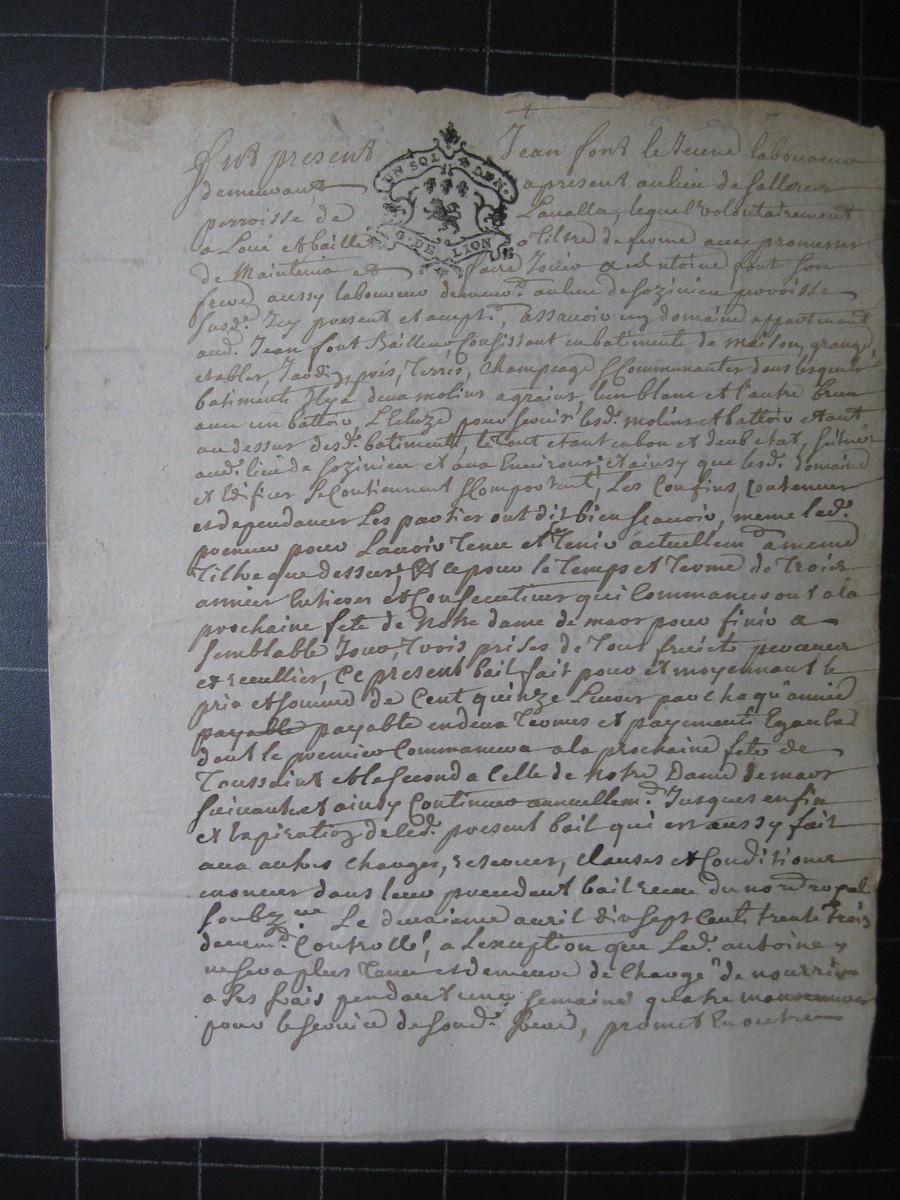 Fut present Jean font le Jeune laboureur
demeurant a present au lieu de
perroisse de Lavalla, lequel volontairement
a Loué et baillé a titre de ferme avec promesses
de Maintenir et faire Jouir a antoine font son
frere aussy laboureur demeur.t au lieu de Sozinieu perroisse
susd.e Icy present et accept.t, assavoir un domaine appartenant
aud. Jean font Bailleur Consistant en batiments de maison, grange,
etables, Jardi, prés, Terres, Champeage & Communauter dans lesquels
batiments Il y a deux molins a grains, lun blanc et l'autre brun
avec un battoir, L'Ecluze pour servir lesd. molins et battoir etant
au dessus desd. batiments, le tout etant en bon et deub etat, situés
aud. lieu de Sozinieu et aux Environs, et ainsy que lesd. Domaine
et Edifices se Contiennent & Comportent, Les Confins, Contenues
et dependances Les parties ont dit bien scavoir, meme led.
preneur pour Lavoir Tenu et le Tenir actuellem.t a meme
Tiltre que dessus, & ce pour le temps et Terme de Trois
années Entieres et Consecutives qui Commanceront a la
prochaine fete de Notre dame de mars pour finir a
semblable Jour, Trois prises de Tous fruicts perceues
et recullies, Ce present bail fait pour et moyennant le
prix et somme de Cent quinze Livres par chaqu'année
payable payable en deux Termes et payements Egaux
dont le premier Commancera a la prochaine fete de
Toussaint et le second a Celle de Notre Dame de mars
suivante et ainsy Continuer annuellem.t Jusques en fin
et Expiration de led. present bail qui est aussy fait
aux autres charges, reserves, clauses et Conditions
enoncées dans leur precedent bail receu du no.re royal
soubz.né Le deuxieme avril dix sept Cents trente Trois
deuem.t Controllé, a Lexception que Led. antoine
ne sera plus Tenu et demeure de Chargé de nourrir
a ses frais pendant une semaine quatre
pour le service de sond. frere, promet En outre
UN SOL DEN.
G. DE LION